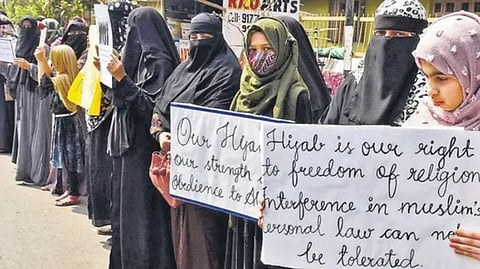 R20 ARTS
CELL: 9177
Our Hija
our strength
Obedience to
Hijab is our right
to freedom of religion
Interference in muslim's
ersonal law can no
be tolerated.